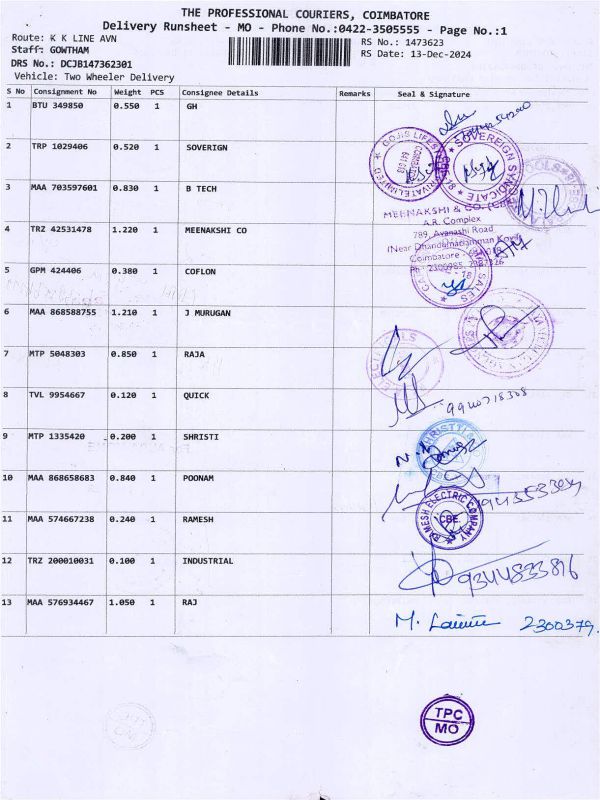 THE PROFESSIONAL COURIERS, COIMBATORE
Delivery Runsheet - MO - Phone No.:0422-3505555 - Page No.:1
Route: K K LINE AVN
Staff: GOWTHAM
DRS No.: DCJB147362301
Vehicle: Two Wheeler Delivery
RS No.: 1473623
RS Date: 13-Dec-2024
S No Consignment No Weight PCS Consignee Details Remarks Seal & Signature
1 BTU 349850 0.550 1 GH
2 TRP 1029406 0.520 1 SOVERIGN
SOVEREIGN SYNDICATE
3 MAA 703597601 0.830 1 B TECH
MEENAKSHI & CO.
A.R. Complex
789, Avanashi Road
4 TRZ 42531478 1.220 1 MEENAKSHI CO
5 GPM 424406 0.380 1 COFLON
SALES
6 MAA 868588755 1.210 1 J MURUGAN
7 MTP 5048303 0.850 1 RAJA
8 TVL 9954667 0.120 1 QUICK
9 MTP 1335420 0.200 1 SHRISTI
10 MAA 868658683 0.840 1 POONAM
11 MAA 574667238 0.240 1 RAMESH
RAMESH ELECTRIC COMPANY
CBE.
12 TRZ 200010031 0.100 1 INDUSTRIAL
9344833816
13 MAA 576934467 1.050 1 RAJ
M. 2300379.
TPC
MO